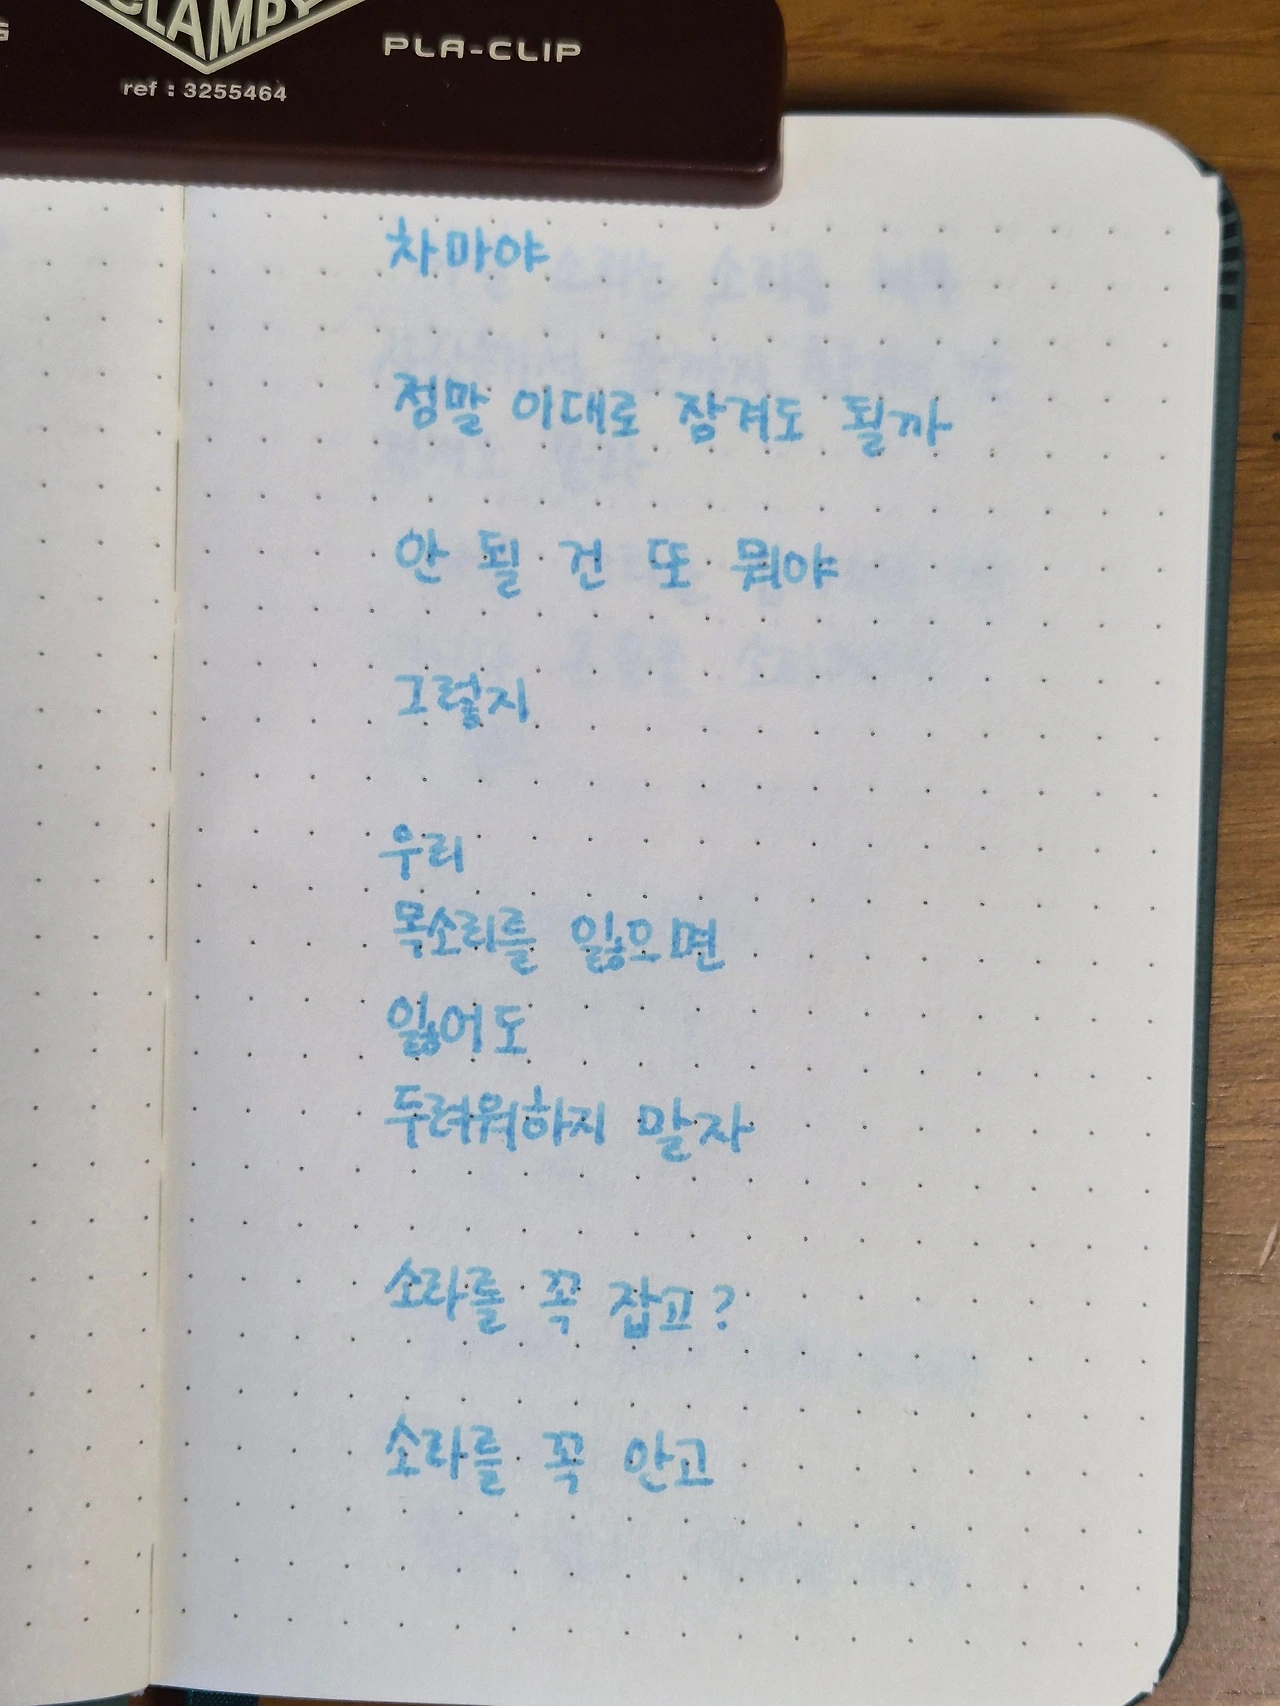 CLAMPY
PLA-CLIP
ref : 3255464
차마야
정말 이대로 잠겨도 될까
안 될 건 또 뭐야
그렇지
우리
목소리를 잃으면
잃어도
두려워하지 말자
소라를 꼭 잡고?
소라를 꼭 안고